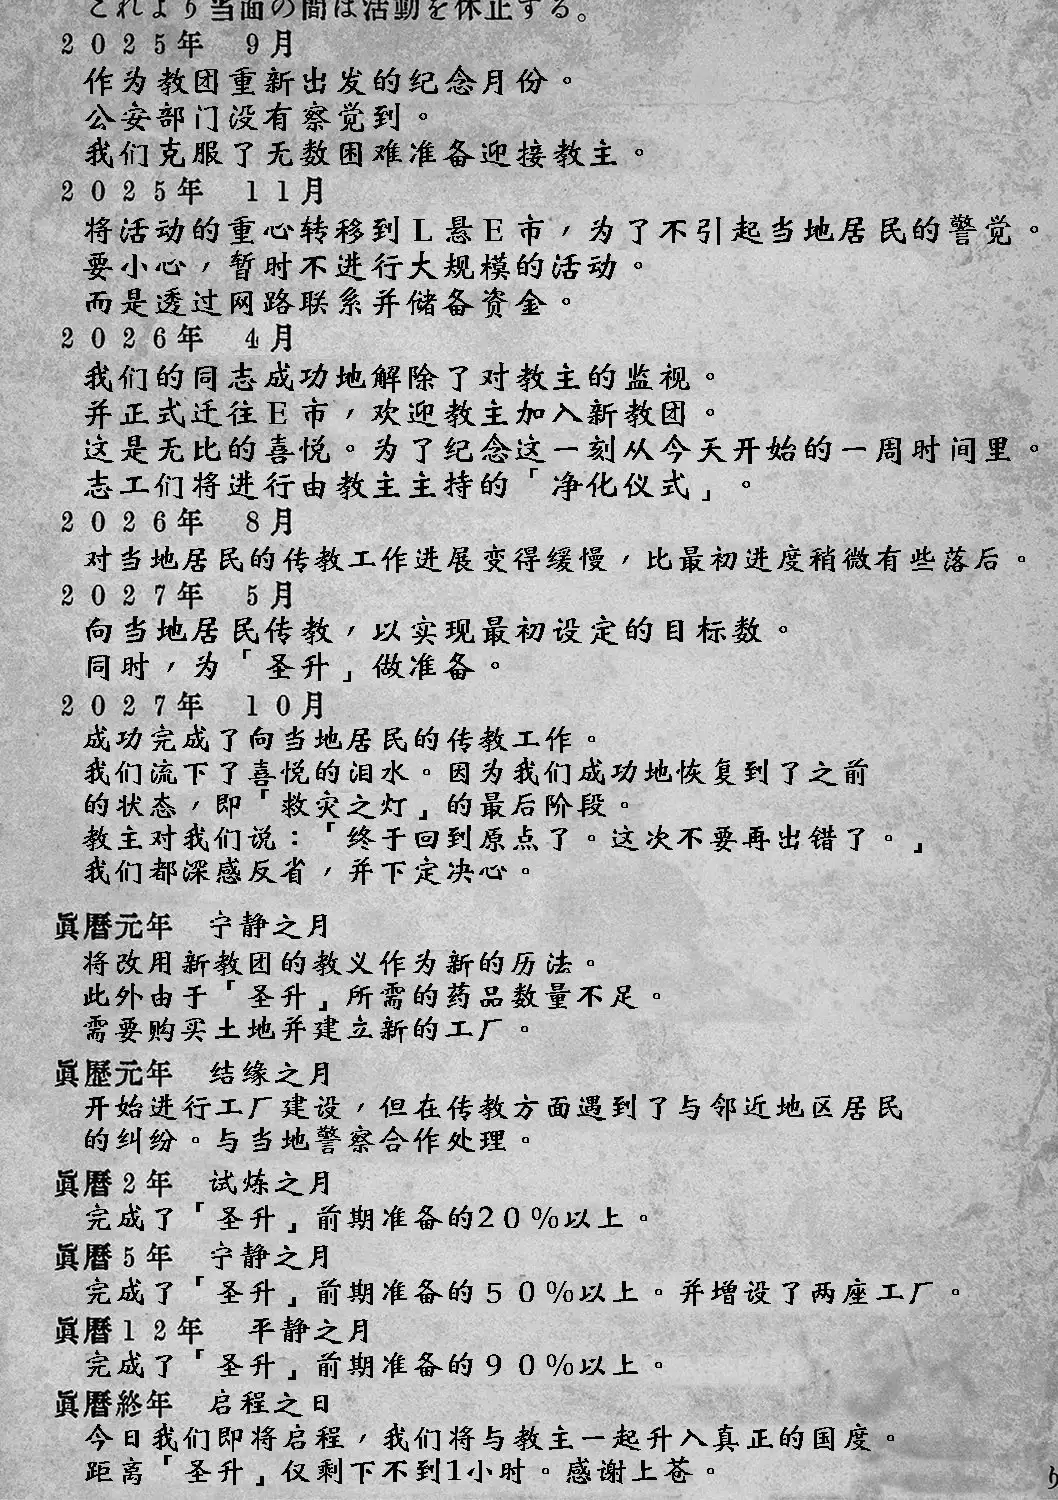 これより当面の間は活動を休止する。
２０２５年　９月
作为教团重新出发的纪念月份。
公安部门没有察觉到。
我们克服了无数困难准备迎接教主。
２０２５年　１１月
将活动的重心转移到Ｌ悬Ｅ市，为了不引起当地居民的警觉。
要小心，暂时不进行大规模的活动。
而是透过网路联系并储备资金。
２０２６年　４月
我们的同志成功地解除了对教主的监视。
并正式迁往Ｅ市，欢迎教主加入新教团。
这是无比的喜悦。为了纪念这一刻从今天开始的一周时间里。
志工们将进行由教主主持的「净化仪式」。
２０２６年　８月
对当地居民的传教工作进展变得缓慢，比最初进度稍微有些落后。
２０２７年　５月
向当地居民传教，以实现最初设定的目标数。
同时，为「圣升」做准备。
２０２７年　１０月
成功完成了向当地居民的传教工作。
我们流下了喜悦的泪水。因为我们成功地恢复到了之前
的状态，即「救灾之灯」的最后阶段。
教主对我们说：「终于回到原点了。这次不要再出错了。」
我们都深感反省，并下定决心。
眞暦元年　宁静之月
将改用新教团的教义作为新的历法。
此外由于「圣升」所需的药品数量不足。
需要购买土地并建立新的工厂。
眞歴元年　结缘之月
开始进行工厂建设，但在传教方面遇到了与邻近地区居民
的纠纷。与当地警察合作处理。
眞暦２年　试炼之月
完成了「圣升」前期准备的20％以上。
眞暦５年　宁静之月
完成了「圣升」前期准备的５０％以上。并增设了两座工厂。
眞暦１２年　平静之月
完成了「圣升」前期准备的９０％以上。
眞暦終年　启程之日
今日我们即将启程，我们将与教主一起升入真正的国度。
距离「圣升」仅剩下不到1小时。感谢上苍。